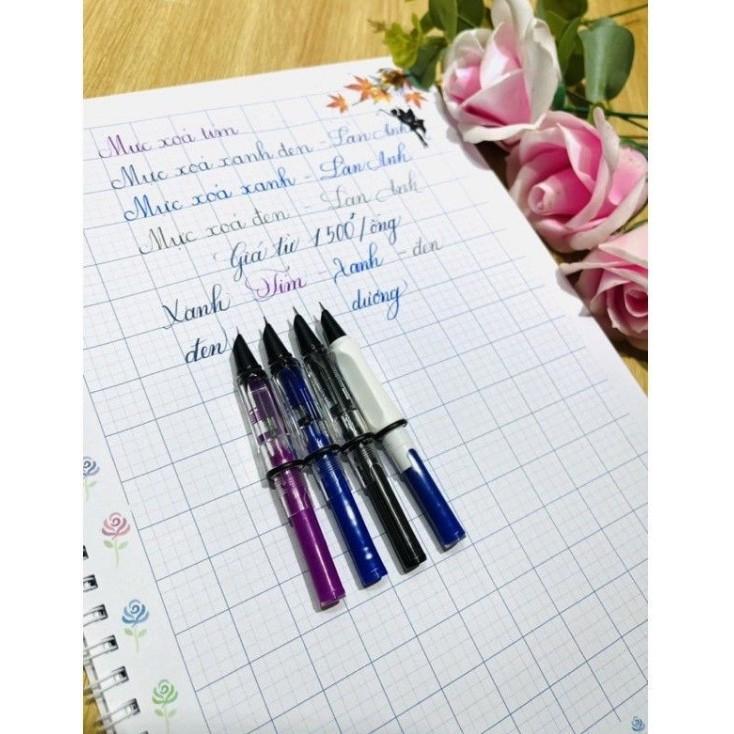 Mực xoá tím
Mực xoá xanh đen - Lan Anh
Mực xoá xanh - Lan Anh
Mực xoá đen - Lan Anh
Giá từ 1500đ/ống
Xanh đen - Tím - Xanh dương - đen